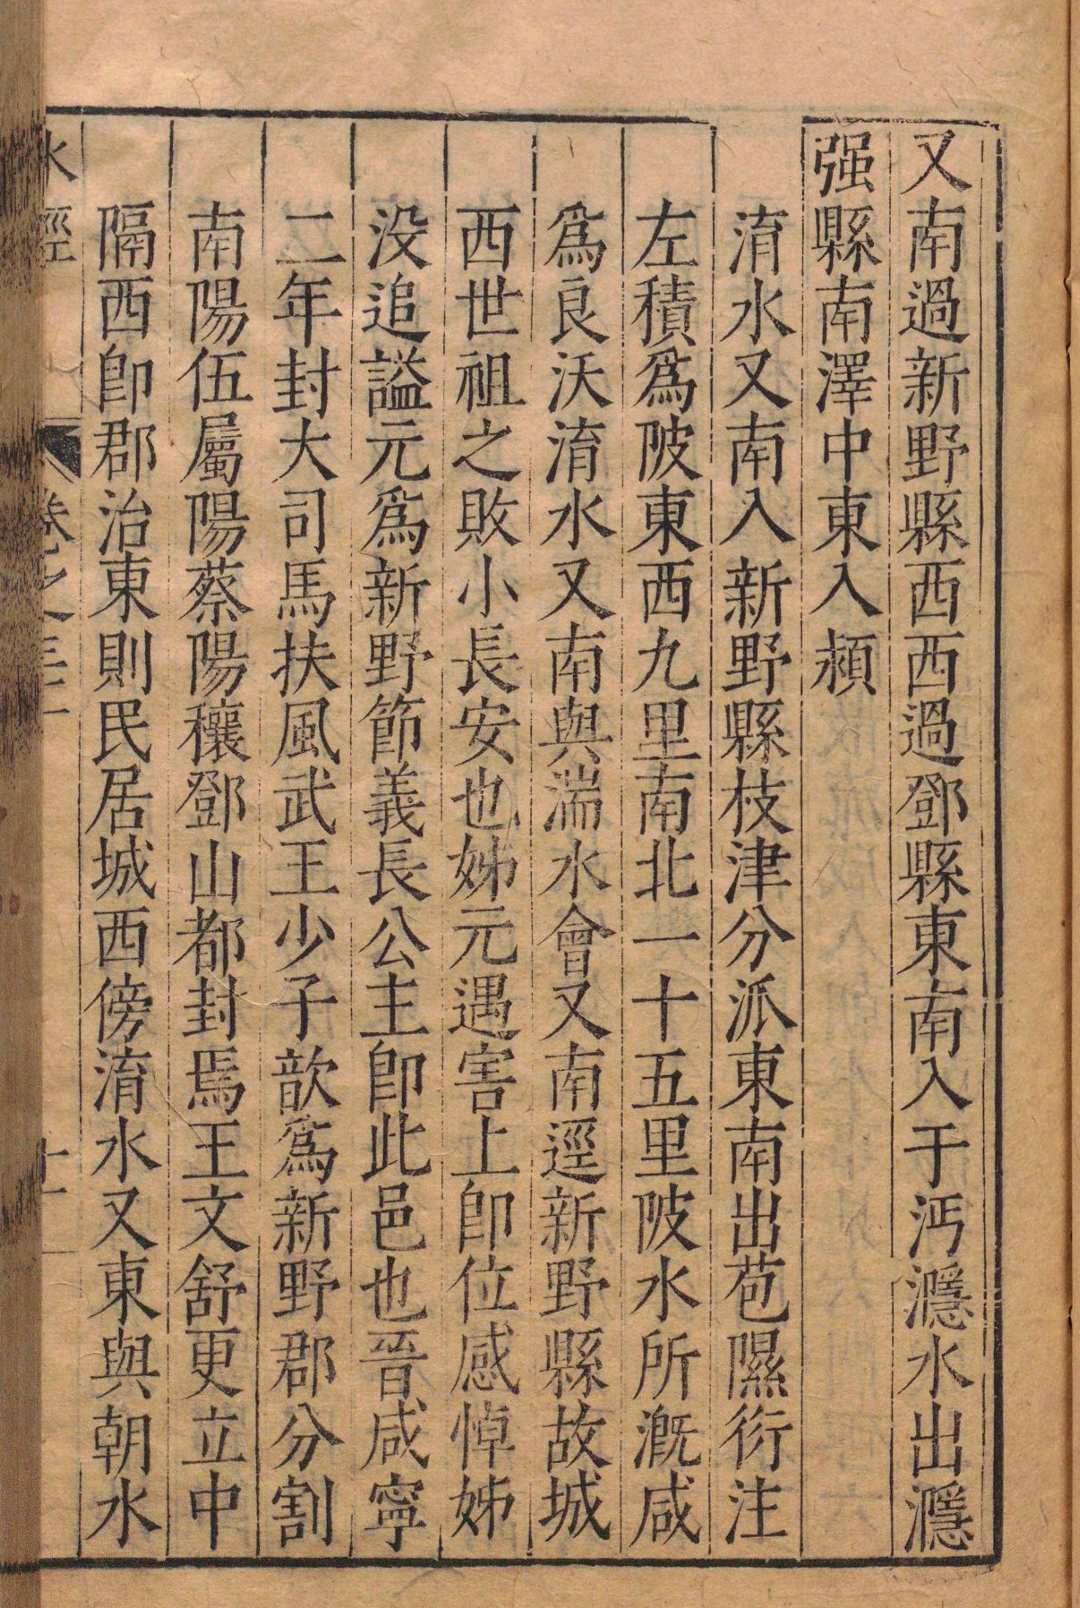 又南過新野縣西西過鄧縣東南入于沔㶏水出㶏
强縣南澤中東入潁
淯水又南入新野縣枝津分派東南出苞隰衍注
左積爲陂東西九里南北一十五里陂水所溉咸
爲良沃淯水又南與湍水會又南逕新野縣故城
西世祖之敗小長安也姊元遇害上卽位感悼姊
没追謚元爲新野節義長公主卽此邑也晉咸寧
二年封大司馬扶風武王少子歆爲新野郡分割
南陽伍屬陽蔡陽穰鄧山都封焉王文舒更立中
隔西卽郡治東則民居城西傍淯水又東與朝水
水經 卷之三十一 十一